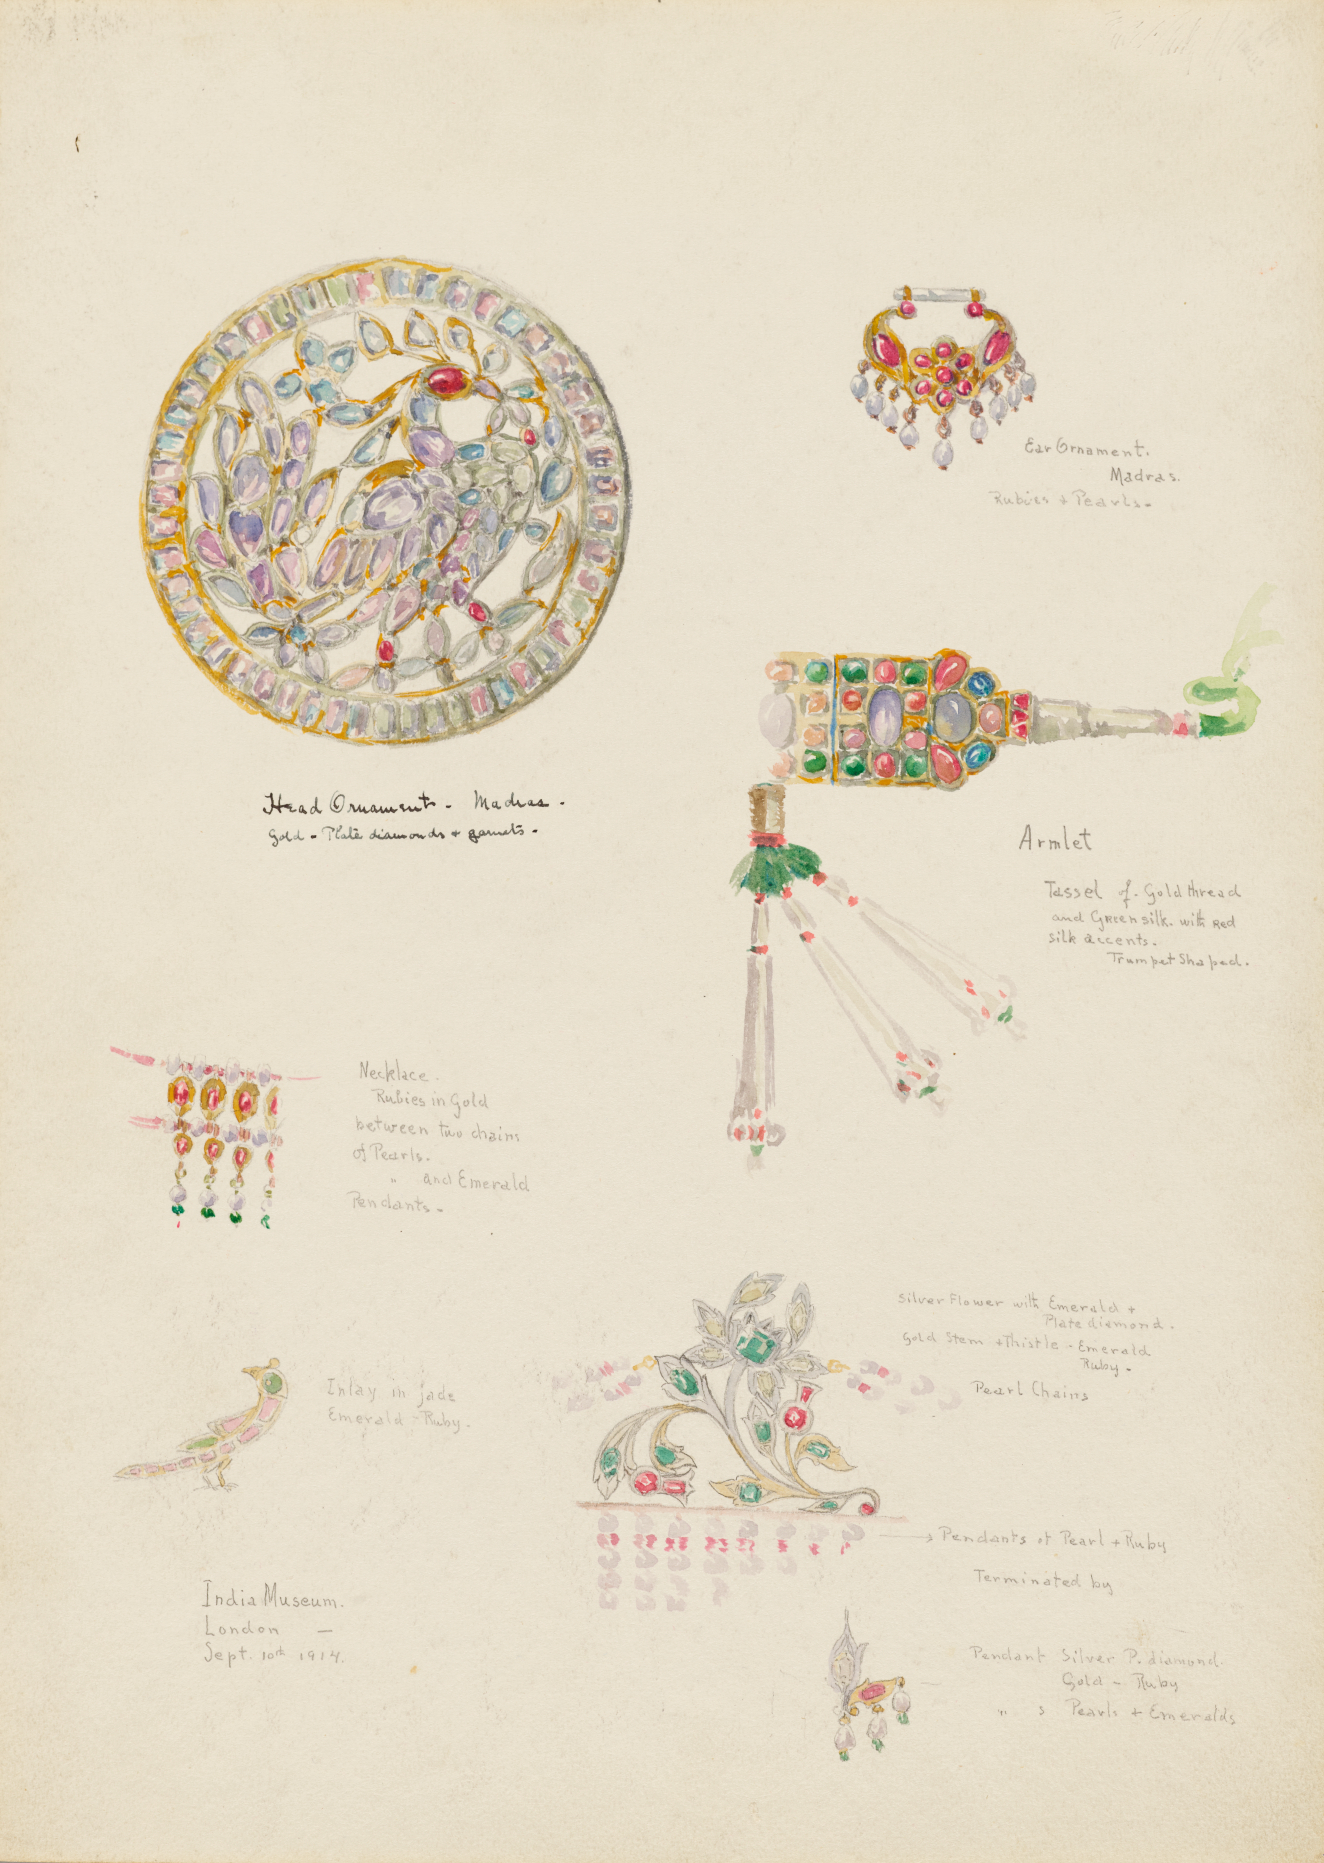 Ear Ornament.
Madras.
Rubies + Pearls.
Head Ornament - Madras.
Gold - Plate diamonds + garnets.
Armlet
Tassel of Gold thread
and Green silk with Red
silk accents.
Trumpet Shaped.
Necklace.
Rubies in Gold
between two chains
of Pearls.
" and Emerald
Pendants.
Silver Flower with Emerald +
Plate diamond.
Gold Stem + Thistle - Emerald
Ruby.
Pearl Chains
Inlay in jade
Emerald - Ruby.
Pendants of Pearl + Ruby
Terminated by
India Museum.
London —
Sept. 10th 1914.
Pendant Silver P. diamond
Gold - Ruby
" s Pearls + Emeralds